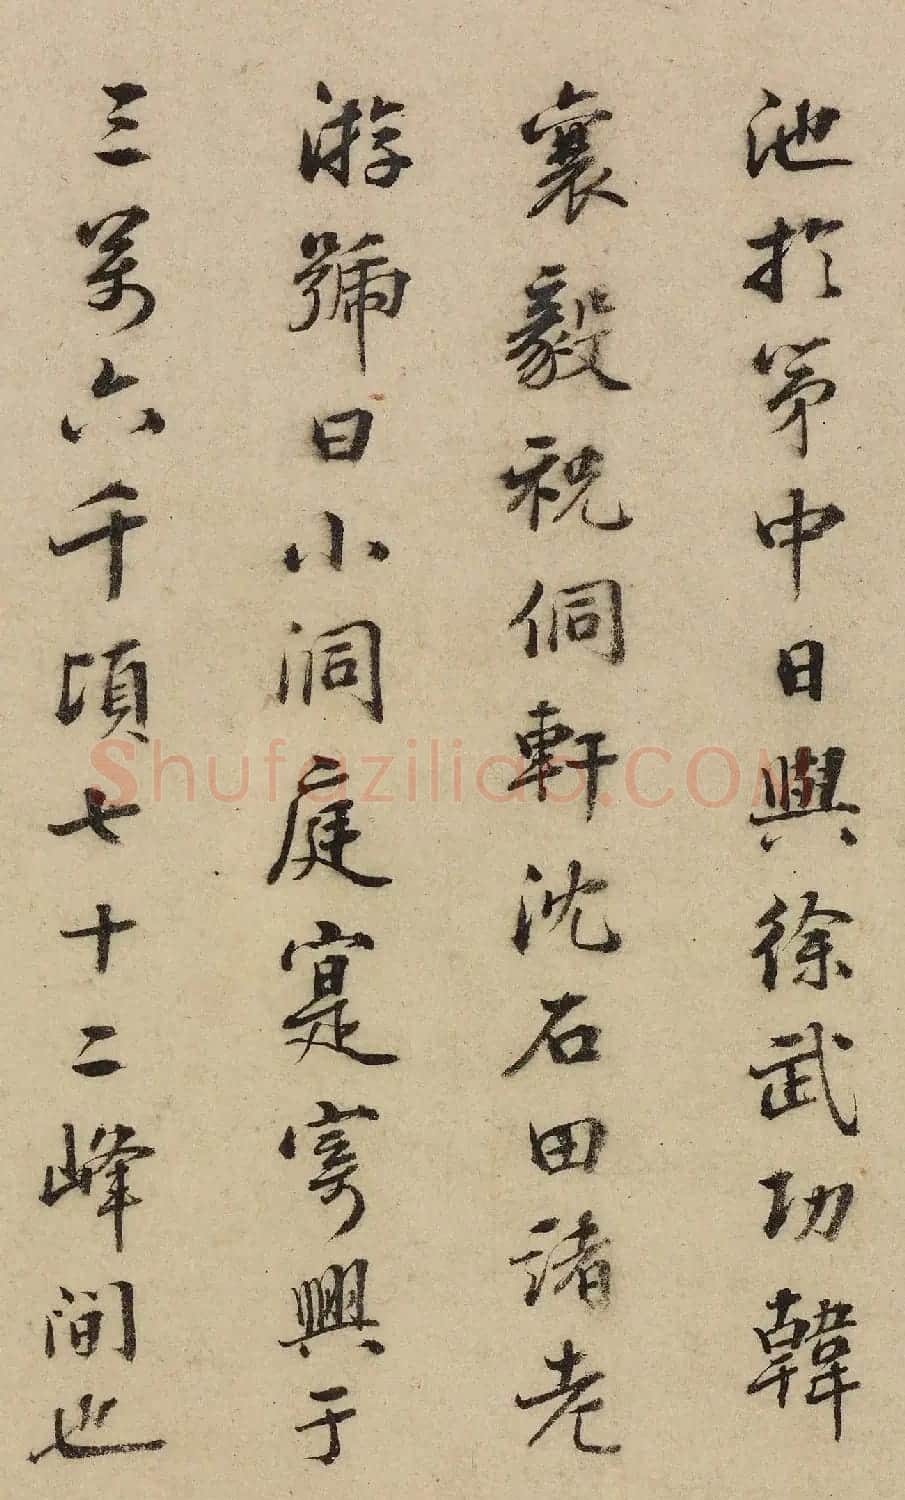 池於第中日與徐武功韓
襄毅祝侗軒沈石田諸老
游號曰小洞庭寔寄興于
三萬六千頃七十二峰間也
Shufaziliao.COM